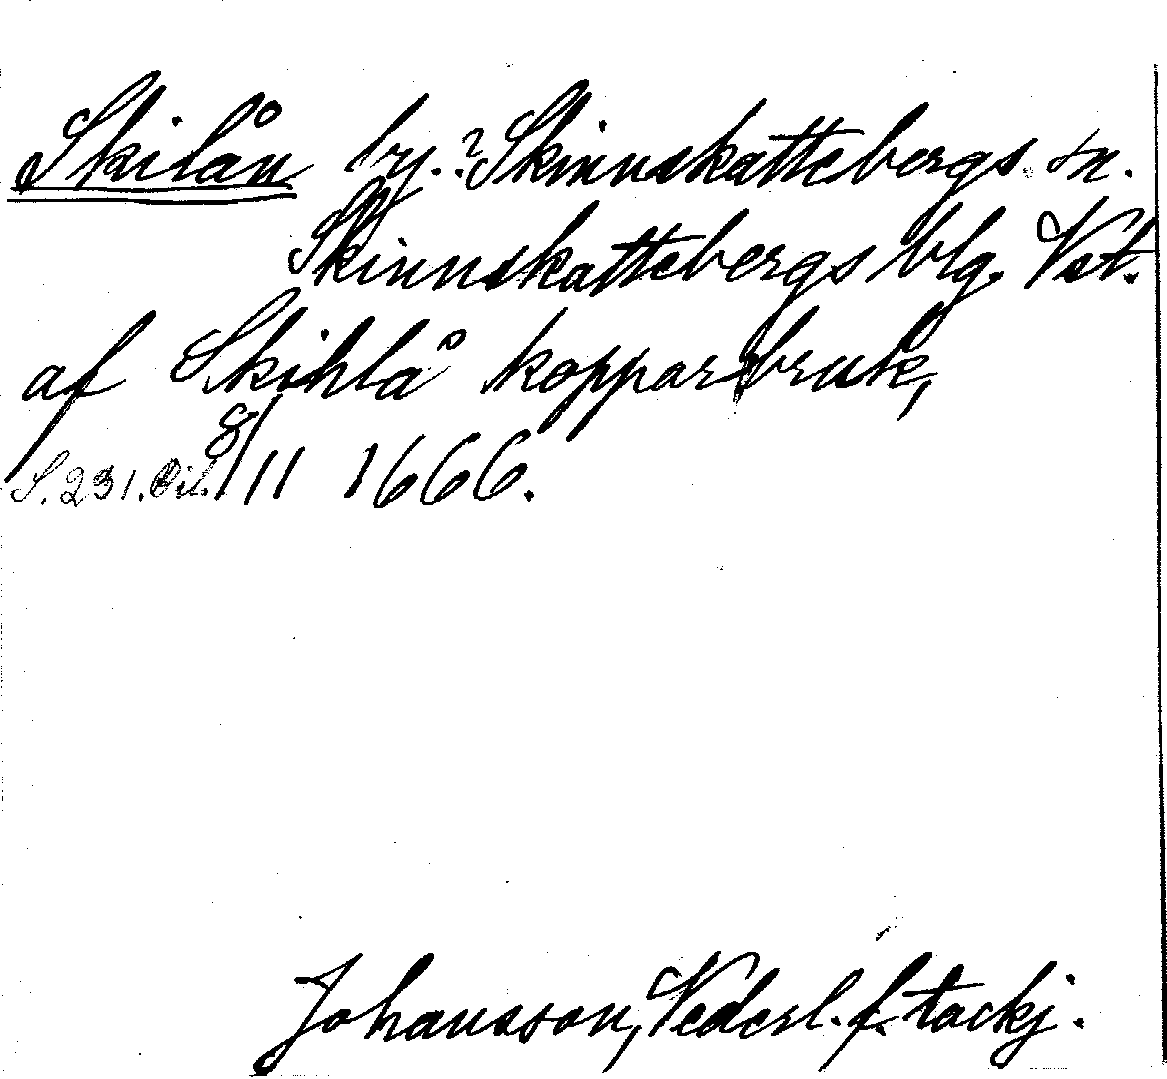 Skilån by.? Skinnskattebergs sn.
Skinnskattebergs blg. Vst.
af Skihlå kopparbruk,
S. 231. Bil. 8/11 1666.
Johansson, Vederl. f. tackj.